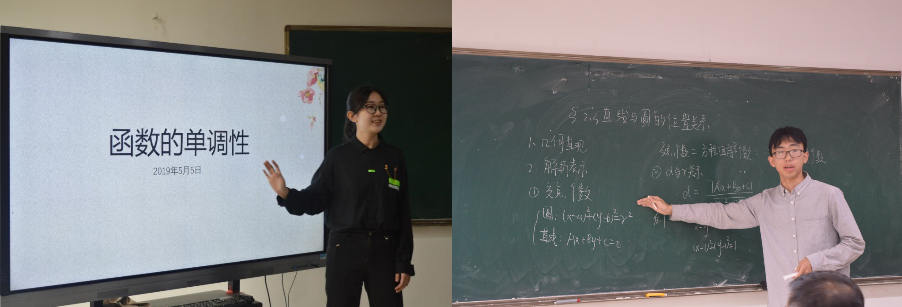 函数的单调性
2019年5月5日
§2.3 直线与圆的位置关系
1、几何表现
2. 解析表示
① 交点个数
圆: (x-a)²+(y-b)²=r²
直线: Ax+By+C=0
交点个数=方程组解个数
② d与r关系
d = |Ax+By+C|